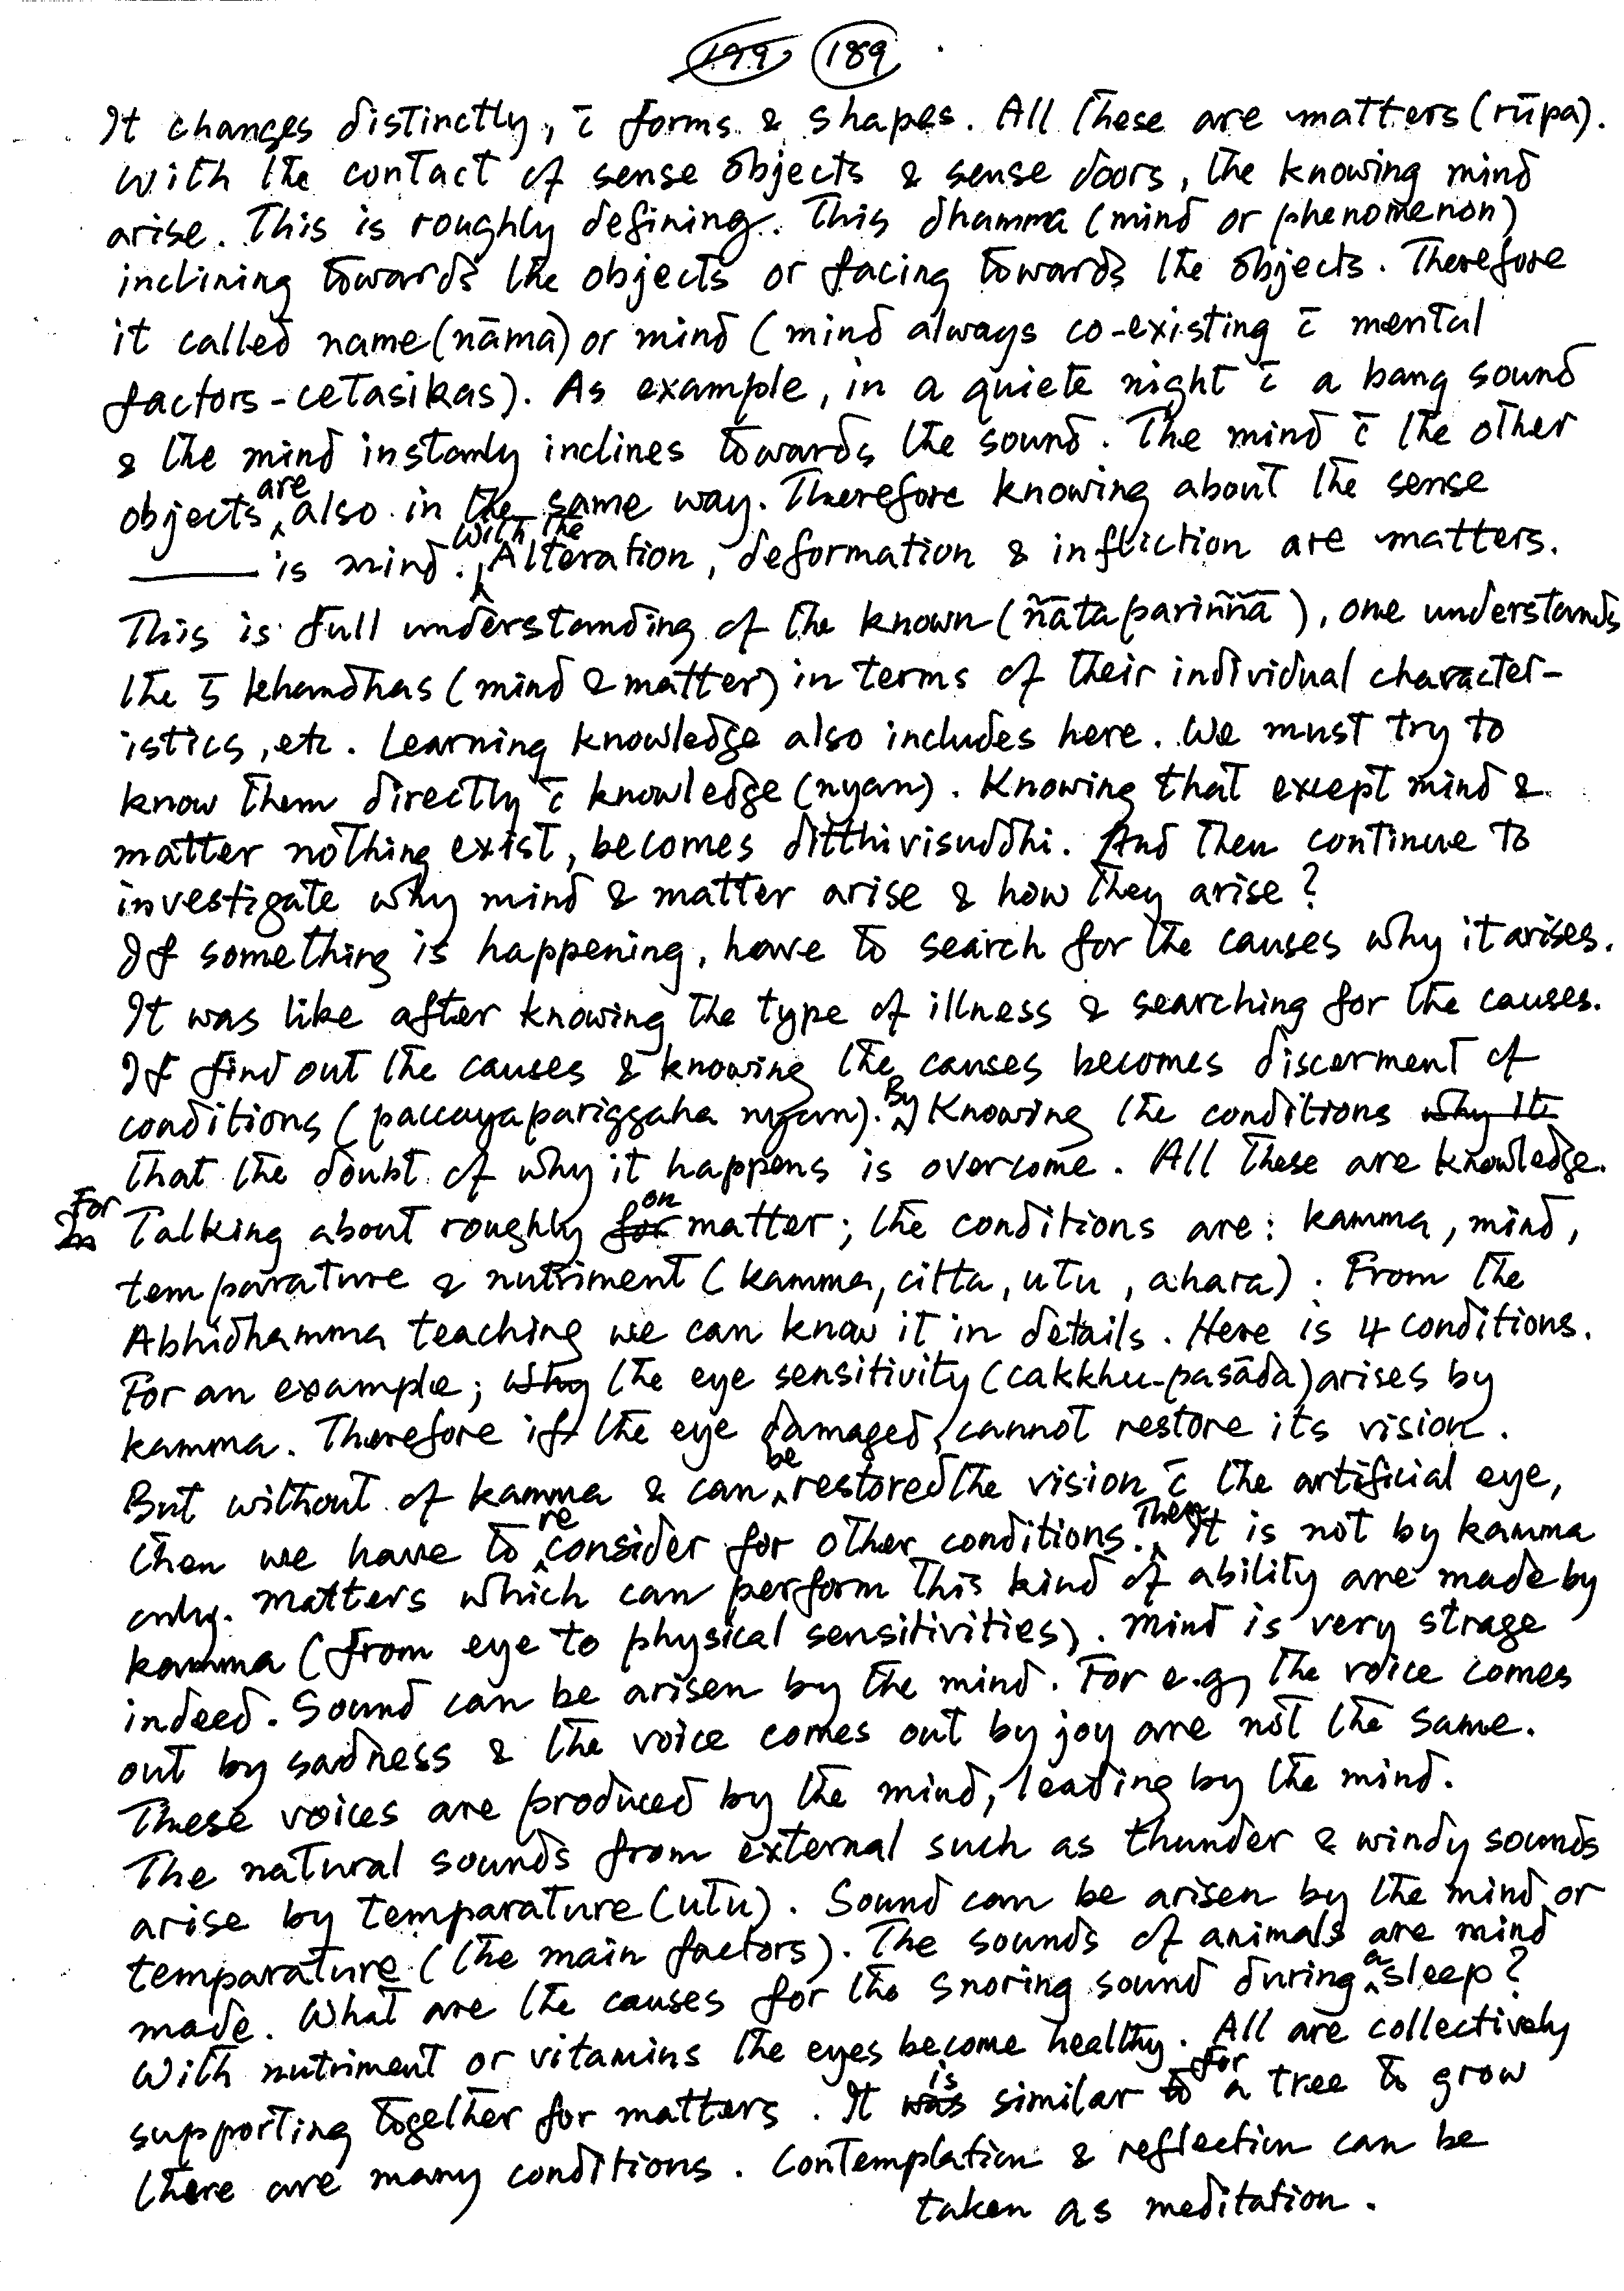 199 189
It changes distinctly, c̄ forms & shapes. All these are matters (rūpa).
With the contact of sense objects & sense doors, the knowing mind
arise. This is roughly defining. This dhamma (mind or phenomenon)
inclining towards the objects or facing towards the objects. Therefore
it called name (nāma) or mind (mind always co-existing c̄ mental
factors - cetasikas). As example, in a quiete night c̄ a bang sound
& the mind instanly inclines towards the sound. The mind c̄ the other
objects are also in the same way. Therefore knowing about the sense
—— is mind. With the Alteration, deformation & infliction are matters.
This is full understanding of the known (ñāta pariññā), one understands
the 5 khandhas (mind & matter) in terms of their individual character-
istics, etc. Learning knowledge also includes here. We must try to
know them directly c̄ knowledge (nyan). Knowing that except mind &
matter nothing exist, becomes ditthivisuddhi. And then continue to
investigate why mind & matter arise & how they arise?
If something is happening, have to search for the causes why it arises.
It was like after knowing the type of illness & searching for the causes.
If find out the causes & knowing the causes becomes discernment of
conditions (paccayapariggaha nyan). By Knowing the conditions why it
that the doubt of why it happens is overcome. All these are knowledge.
In For Talking about roughly for on matter; the conditions are: kamma, mind,
temparature & nutriment (kamma, citta, utu, ahara). From the
Abhidhamma teaching we can know it in details. Here is 4 conditions.
For an example; why the eye sensitivity (cakkhu-pasāda) arises by
kamma. Therefore if the eye damaged, cannot restore its vision.
But without of kamma & can be restored the vision c̄ the artificial eye,
then we have to reconsider for other conditions. Then It is not by kamma
only. Matters which can perform this kind of ability are made by
kamma (from eye to physical sensitivities). Mind is very strage
indeed. Sound can be arisen by the mind. For e.g, the voice comes
out by sadness & the voice comes out by joy are not the same.
These voices are produced by the mind, leading by the mind.
The natural sounds from external such as thunder & windy sounds
arise by temparature (utu). Sound can be arisen by the mind or
temparature (the main factors). The sounds of animals are mind
made. What are the causes for the snoring sound during a sleep?
With nutriment or vitamins the eyes become healthy. All are collectively
supporting together for matters. It was is similar to for a tree to grow
there are many conditions. Contemplation & reflection can be
taken as meditation.